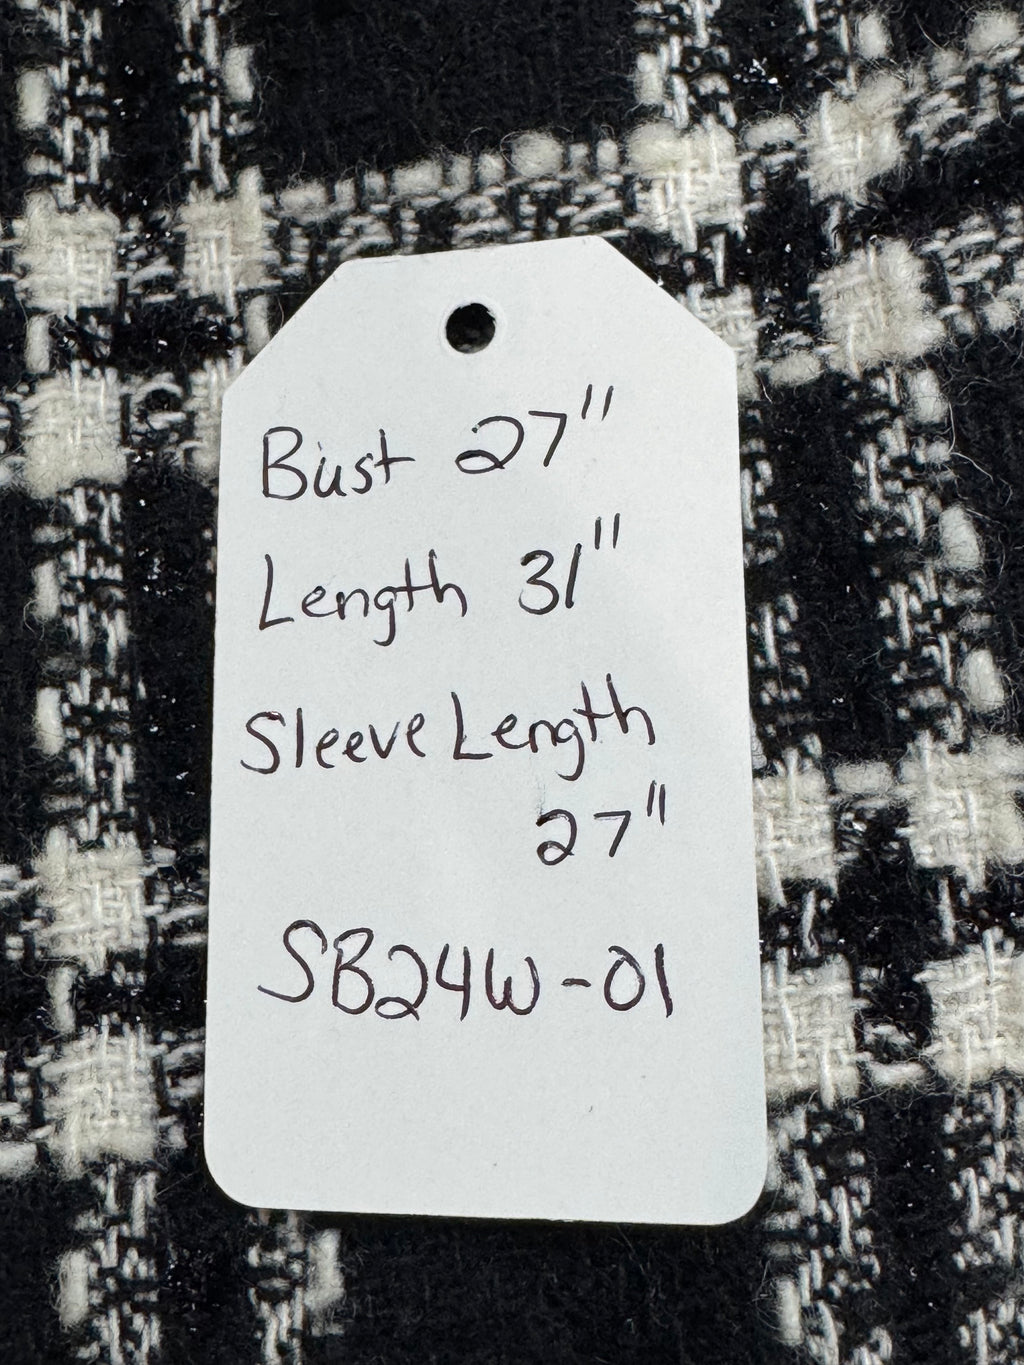 Bust 27"
Length 31"
Sleeve Length
27"
SB24W-01